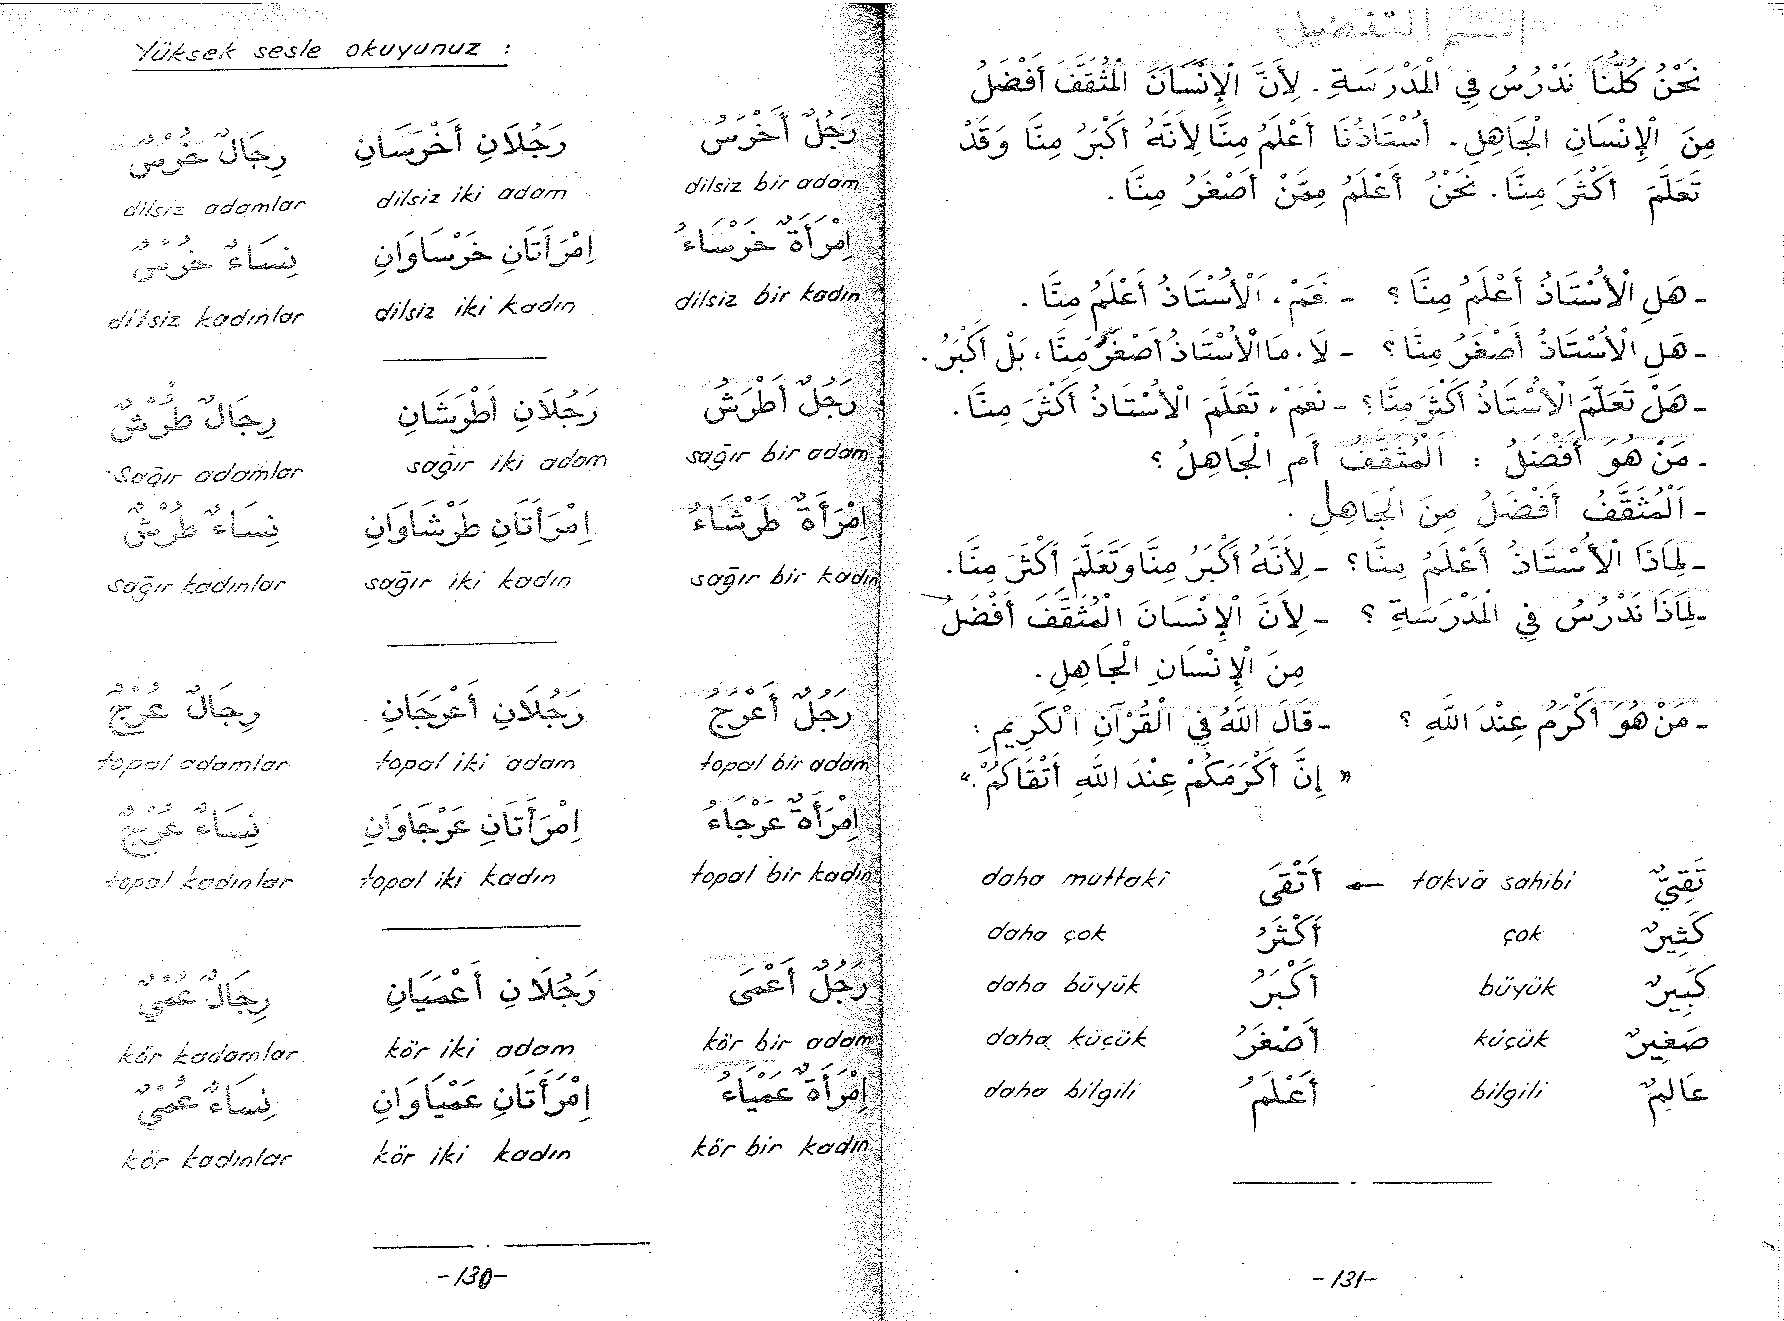 Yüksek sesle okuyunuz :
رَجُلٌ أَخْرَسُ رَجُلَانِ أَخْرَسَانِ رِجَالٌ خُرْسٌ
dilsiz bir adam dilsiz iki adam dilsiz adamlar
اِمْرَأَةٌ خَرْسَاءُ اِمْرَأَتَانِ خَرْسَاوَانِ نِسَاءٌ خُرْسٌ
dilsiz bir kadın dilsiz iki kadın dilsiz kadınlar
رَجُلٌ أَطْرَشُ رَجُلَانِ أَطْرَشَانِ رِجَالٌ طُرْشٌ
sağır bir adam sağır iki adam Sağır adamlar
اِمْرَأَةٌ طَرْشَاءُ اِمْرَأَتَانِ طَرْشَاوَانِ نِسَاءٌ طُرْشٌ
sağır bir kadın sağır iki kadın sağır kadınlar
رَجُلٌ أَعْرَجُ رَجُلَانِ أَعْرَجَانِ رِجَالٌ عُرْجٌ
topal bir adam topal iki adam topal adamlar
اِمْرَأَةٌ عَرْجَاءُ اِمْرَأَتَانِ عَرْجَاوَانِ نِسَاءٌ عُرْجٌ
topal bir kadın topal iki kadın topal kadınlar
رَجُلٌ أَعْمَى رَجُلَانِ أَعْمَيَانِ رِجَالٌ عُمْيٌ
kör bir adam kör iki adam kör kadamlar
اِمْرَأَةٌ عَمْيَاءُ اِمْرَأَتَانِ عَمْيَاوَانِ نِسَاءٌ عُمْيٌ
kör bir kadın kör iki kadın kör kadınlar
-130-
اسم التفضيل
نَحْنُ كُلُّنَا نَدْرُسُ فِي الْمَدْرَسَةِ. لِأَنَّ الْإِنْسَانَ الْمُثَقَّفَ أَفْضَلُ
مِنَ الْإِنْسَانِ الْجَاهِلِ. أُسْتَاذُنَا أَعْلَمُ مِنَّا لِأَنَّهُ أَكْبَرُ مِنَّا وَقَدْ
تَعَلَّمَ أَكْثَرَ مِنَّا. نَحْنُ أَعْلَمُ مِمَّنْ أَصْغَرُ مِنَّا.
- هَلِ الْأُسْتَاذُ أَعْلَمُ مِنَّا؟ - نَعَمْ، اَلْأُسْتَاذُ أَعْلَمُ مِنَّا.
- هَلِ الْأُسْتَاذُ أَصْغَرُ مِنَّا؟ - لَا، مَا الْأُسْتَاذُ أَصْغَرُ مِنَّا، بَلْ أَكْبَرُ.
- هَلْ تَعَلَّمَ الْأُسْتَاذُ أَكْثَرَ مِنَّا؟ - نَعَمْ، تَعَلَّمَ الْأُسْتَاذُ أَكْثَرَ مِنَّا.
- مَنْ هُوَ أَفْضَلُ : اَلْمُثَقَّفُ أَمِ الْجَاهِلُ؟
- اَلْمُثَقَّفُ أَفْضَلُ مِنَ الْجَاهِلِ.
- لِمَاذَا الْأُسْتَاذُ أَعْلَمُ مِنَّا؟ - لِأَنَّهُ أَكْبَرُ مِنَّا وَتَعَلَّمَ أَكْثَرَ مِنَّا.
- لِمَاذَا نَدْرُسُ فِي الْمَدْرَسَةِ؟ - لِأَنَّ الْإِنْسَانَ الْمُثَقَّفَ أَفْضَلُ
مِنَ الْإِنْسَانِ الْجَاهِلِ.
- مَنْ هُوَ أَكْرَمُ عِنْدَ اللّٰهِ؟ - قَالَ اللّٰهُ فِي الْقُرْآنِ الْكَرِيمِ :
« إِنَّ أَكْرَمَكُمْ عِنْدَ اللّٰهِ أَتْقَاكُمْ.»
تَقِيٌّ takvâ sahibi ← أَتْقَى daha muttaki
كَثِيرٌ çok أَكْثَرُ daha çok
كَبِيرٌ büyük أَكْبَرُ daha büyük
صَغِيرٌ küçük أَصْغَرُ daha küçük
عَالِمٌ bilgili أَعْلَمُ daha bilgili
-131-